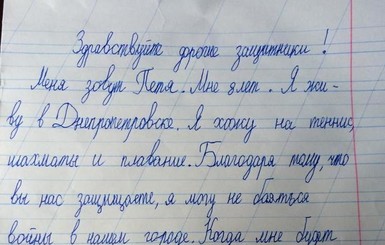 Здравствуйте дорогие защитники!
Меня зовут Петя. Мне 8 лет. Я жи-
ву в Днепропетровске. Я хожу на теннис,
шахматы и плавание. Благодаря тому, что
вы нас защищаете, я могу не бояться
войны в нашем городе. Когда мне будет